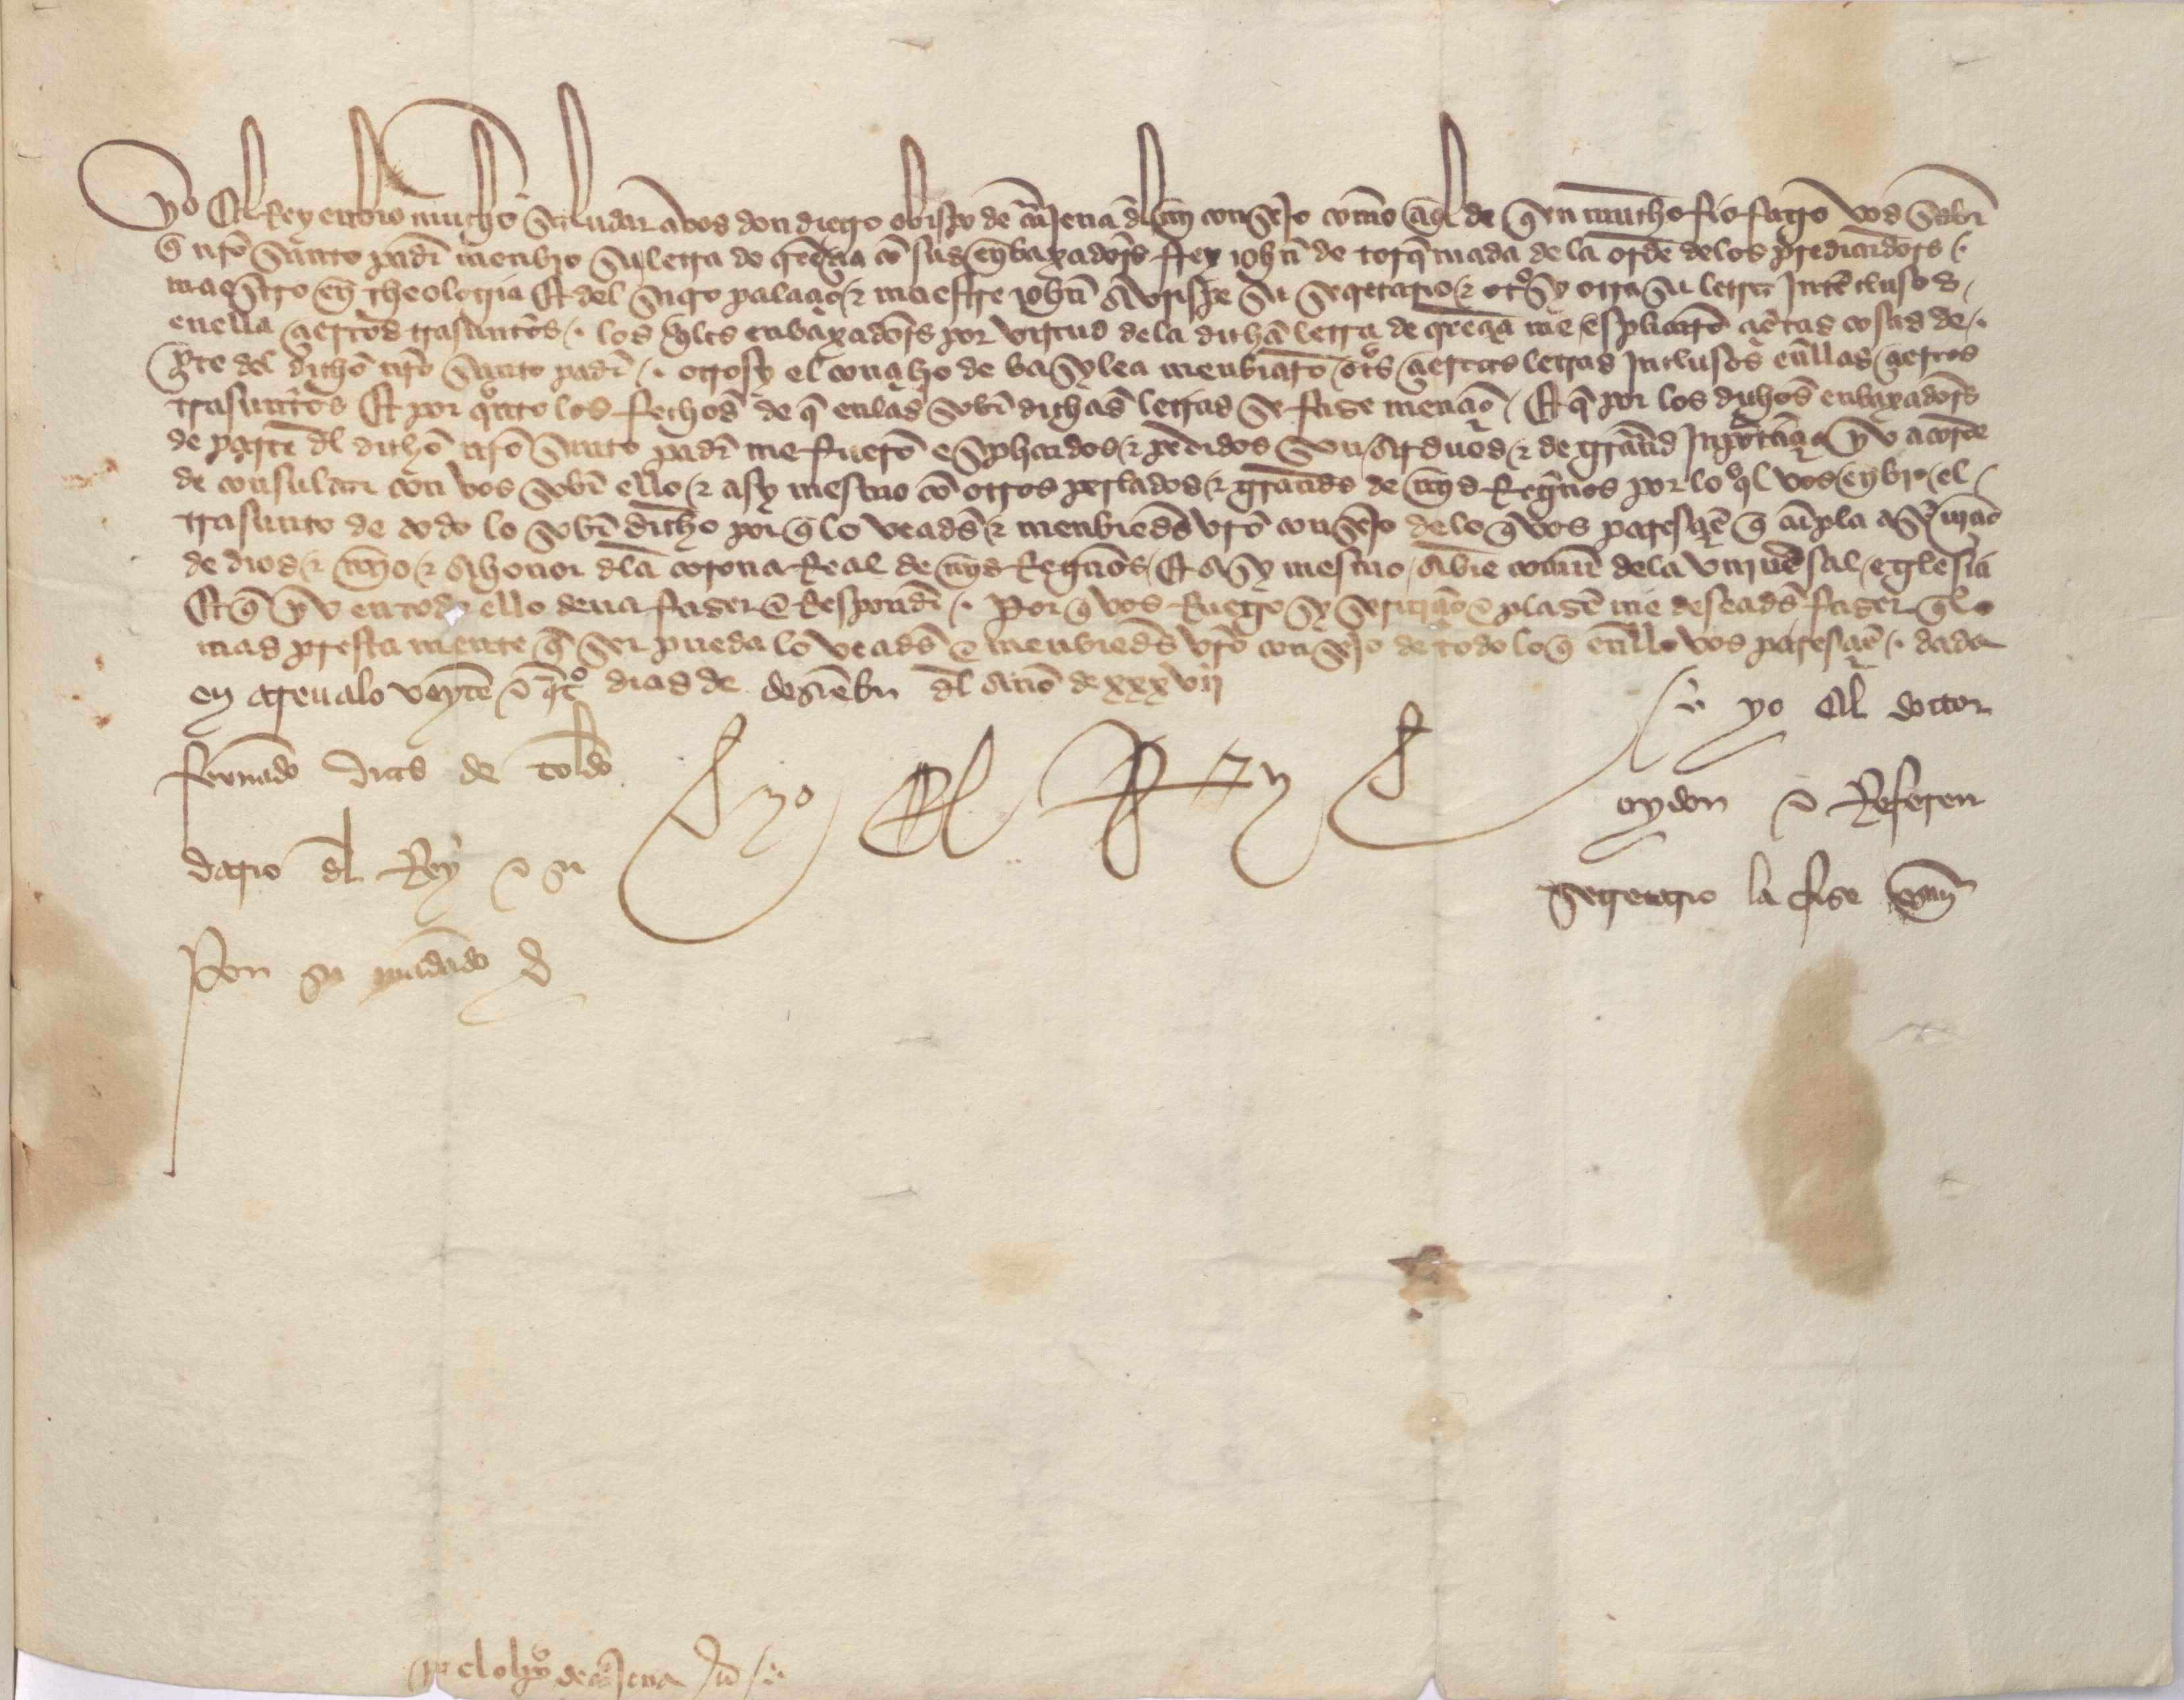 yo El Rey enbio mucho saludar a vos don diego obispo de cartajena del mi consejo como aql de qen mucho fio fago vos saber
q nro santo padre menbio su letra de creençia cō sus enbaxadores frey iohn de torqmada de la orde de los predicadores
maestro en theologia Et del sacro palaçio & maestre iohn Aurispe su secretario & otrosy otra su letra Intercluso
en ella çiertos trasuntos. los qles enbaxadores por virtud de la dicha letra de creençia me esplicaro çiertas cosas de
pte del dicho nro santo padre. otrosy el conçilio de basylea menbiaro otras çiertas letras Inclusos en ellas çiertos
trasuntos Et por qnto los fechos de q en las sobre dichas letras se faze mençio, Et q por los dichos enbaxadores
de parte dl dicho nro santo padre me fuero esplicados & pedidos son arduos & de grand Inportançia yo acorde
de consultar con vos sobre ello & asy mesmo cō otros perlados & grandes de mys Regnos por lo ql vos enbio el
trasunto de todo lo sobre dicho por q lo veades & menbiedes vro consejo de lo q vos paresçe q cunpla a serviçio
de dios & myo & a honor dla corona Real de mys Regnos Et asy mesmo a bie comun de la vniversal eglesia
Et q yo en todo ello deua fazer e Responder. Por q vos Ruego sy seruiçio e plazer me deseades fazer q lo
mas prestamente q ser pueda lo veades e menbiedes vro consejo de todo lo q en ello vos paresçe. dada
en areualo veynte e qtro dias de dezienbre dl año de xxxvij
yo El doctor
fernado dias de toledo
yo El Rey
oydor e Referen
dario dl Rey e su
secretario la fise escriuir
Por su madado
por el obpo de cartajena